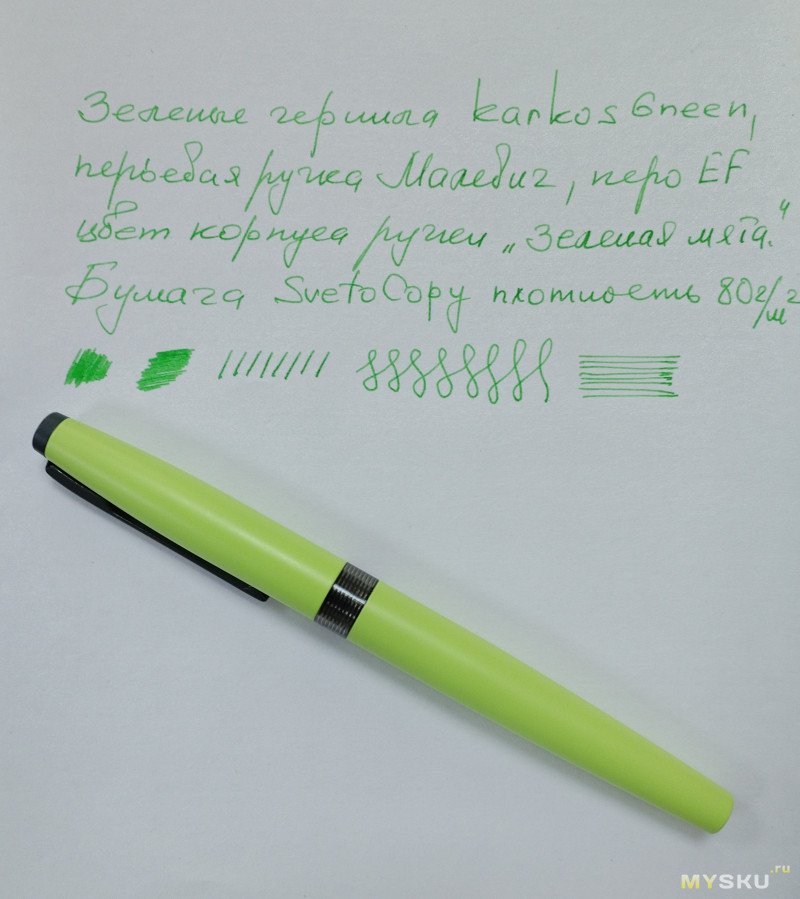 Зеленые чернила karkos Green,
перьевая ручка Малевич, перо EF
цвет корпуса ручки „Зеленая мята."
Бумага SvetoCopy плотность 80г/м2
MYSKU.ru